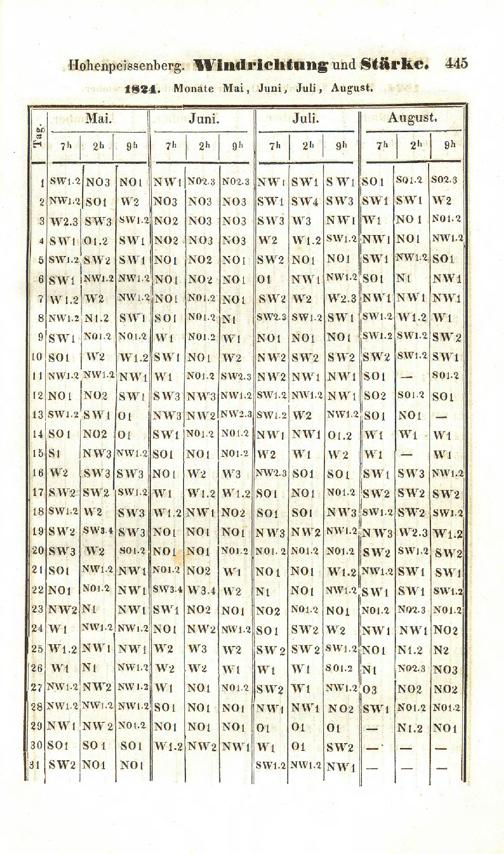 Hohenpeissenberg. Windrichtung und Stärke. 445
1824. Monate Mai, Juni, Juli, August.
Tag. Mai. Juni. Juli. August.
7h 2h 9h 7h 2h 9h 7h 2h 9h 7h 2h 9h
1 SW1.2 NO3 NO1 NW1 NO2.3 NO2.3 NW1 SW1 SW1 SO1 SO1.2 SO2.3
2 NW1.2 SO1 W2 NO3 NO3 NO3 SW1 SW4 SW3 SW1 SW1 W2
3 W2.3 SW3 SW1.2 NO2 NO3 NO3 SW3 W3 NW1 W1 NO1 NO1.2
4 SW1 O1.2 SW1 NO2 NO3 NO3 W2 W1.2 SW1.2 NW1 NO1 NW1.2
5 SW1.2 SW2 SW1 NO1 NO2 NO1 SW2 NO1 NO1 SW1 NW1.2 SO1
6 SW1 NW1.2 NW1.2 NO1 NO1 NO1 O1 NW1 NW1.2 SO1 N1 NW1
7 W1.2 W2 NW1.2 NO1 NO1.2 NO1 SW2 W2 W2.3 NW1 NW1 NW1
8 NW1.2 N1.2 SW1 SO1 NO1.2 N1 SW2.3 SW1.2 SW1 SW1.2 W1.2 W1
9 SW1 NO1.2 NO1.2 W1 NO1.2 W1 NO1 NO1 NO1 SW1.2 SW1.2 SW2
10 SO1 W2 W1.2 SW1 NO1 W2 NW2 SW2 SW2 SW2 SW1.2 SW1
11 NW1.2 NW1.2 NW1 W1 NO1.2 SW2.3 NW2 NW1 NW1 SO1 — SO1.2
12 NO1 NO2 SW1 SW3 NW3 NW1.2 SW1.2 NW1.2 NW1 SO2 SO1.2 SO1
13 SW1.2 SW1 O1 NW3 NW2 NW2.3 SW1.2 W2 NW1.2 SO1 NO1 —
14 SO1 NO2 O1 SW1 NO1.2 NO1.2 NW1 NW1 O1.2 W1 W1 W1
15 S1 NW3 NW1.2 SO1 NO1 NO1.2 W2 W1 W2 W1 — W1
16 W2 SW3 SW3 NO1 W2 W3 NW2.3 SO1 SO1 SW1 SW3 NW1.2
17 SW2 SW2 SW1.2 W1 W1.2 W1.2 SO1 NO1 NO1.2 SW2 SW2 SW2
18 SW1.2 W2 SW3 W1.2 NW1 NO2 SO1 SO1 NW3 SW1.2 SW2 SW2
19 SW2 SW3.4 SW3 NO1 NO1 NO1 NW3 NW2 NW1.2 NW3 W2.3 W1.2
20 SW3 W2 SO1.2 NO1 NO1 NO1.2 NO1.2 NO1.2 NO1.2 SW2 SW1.2 SW2
21 SO1 NW1.2 NW1 NO1.2 NO2 W1 NO1 NO1 W1.2 NW1.2 SW1 SW1
22 NO1 NO1.2 NW1 SW3.4 W3.4 W2 N1 NO1 NW1.2 SW1 SW1 SW1.2
23 NW2 N1 NW1 SW1 NO2 NO1 NO2 NO1.2 NO1 NO1.2 NO2.3 NO1.2
24 W1 NW1.2 NW1.2 NO1 NW2 NW1.2 SO1 SW2 W2 NW1 NW1 NO2
25 W1.2 NW1 NW1 W2 W3 W2 SW2 SW2 SW1.2 NO1 N1.2 N2
26 W1 N1 NW1.2 W2 W2 W1 W1 W1 SO1.2 N1 NO2.3 NO3
27 NW1.2 NW2 NW1.2 W1 NO1 NO1.2 SW2 W1 NW1.2 O3 NO2 NO2
28 NW1.2 NW1.2 NW1.2 SO1 NO1 NO1 NW1 NW1 NO2 SW1 NO1.2 NO1.2
29 NW1 NW2 NO1.2 NO1 NO1 NO1 O1 O1 O1 — N1.2 NO1
30 SO1 SO1 SO1 W1.2 NW2 NW1 W1 O1 SW2 — — —
31 SW2 NO1 NO1 SW1.2 NW1.2 NW1 — — —